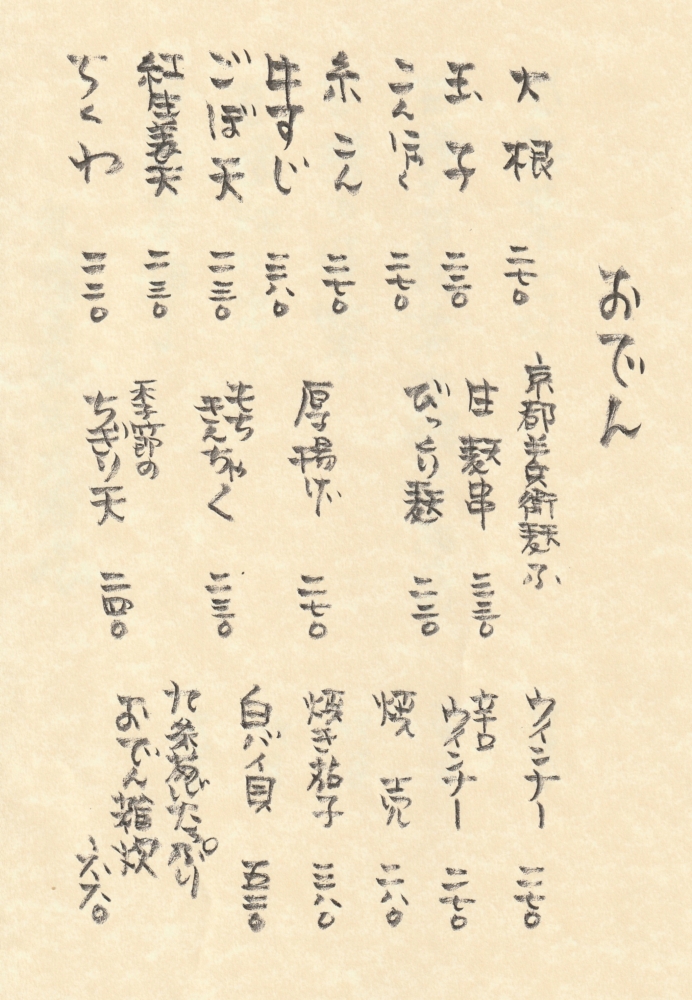 おでん
大根 二七〇
玉子 二三〇
こんにゃく 二七〇
糸こん 二七〇
牛すじ 三八〇
ごぼ天 二三〇
紅生姜天 二三〇
ちくわ
京都半兵衛麩
生麩串 三三〇
びっくり麩
厚揚げ 二七〇
もち
きんちゃく 二三〇
季節の
ちぎり天 二四〇
ウインナー 二七〇
辛口
ウインナー 二七〇
焼売 二八〇
焼き茄子 三八〇
白バイ貝 五三〇
九条葱たっぷり
おでん雑炊
六八〇